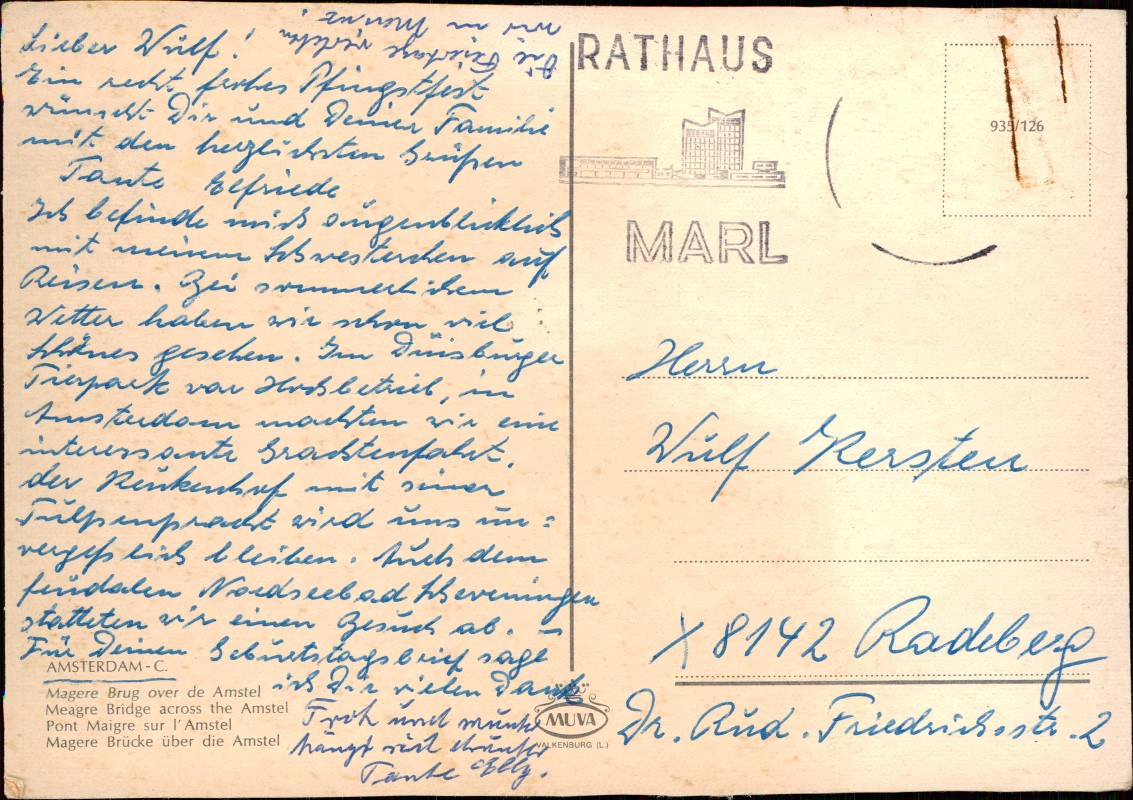 Lieber Wulf!
Ein recht frohes Pfingstfest
wünscht Dir und Deiner Familie
mit den herzlichsten Grüßen
Tante Elfriede
Ich befinde mich augenblicklich
mit meinem Schwesterchen auf
Reisen. Bei sommerlichem
Wetter haben wir schon viel
Schönes gesehen. Im Duisburger
Tierpark war Hochbetrieb, in
Amsterdam machten wir eine
interessante Grachtenfahrt,
der Keukenhof mit seiner
Tulpenpracht wird uns un=
vergeßlich bleiben. Auch dem
feudalen Nordseebad Scheveningen
statteten wir einen Besuch ab. –
Für Deinen Geburtstagsbrief sage
ich Dir vielen Dank
Froh und munter
hängt sich drunter
Tante Elly.
Die Feiertage verleben
wir in Mainz!
AMSTERDAM - C.
Magere Brug over de Amstel
Meagre Bridge across the Amstel
Pont Maigre sur l'Amstel
Magere Brücke über die Amstel
MUVA
VALKENBURG (L.)
RATHAUS
MARL
935/126
Herrn
Wulf Kersten
X 8142 Radeberg
Dr. Rud. Friedrichsstr. 2